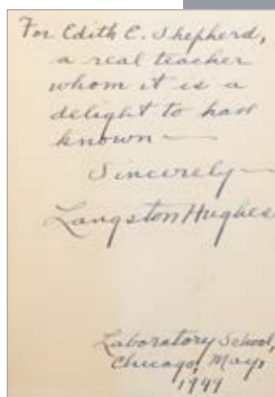 For Edith E. Shepherd,
a real teacher
whom it is a
delight to have
known —
Sincerely —
Langston Hughes
Laboratory School,
Chicago, May,
1949